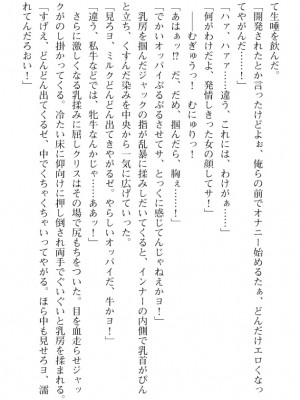 て生唾を飲んだ。
「開発されたとか言ったけどよぉ、俺らの前でオナニー始めるたぁ、どんだけエロくなっ
てやがんだ……！」
「ハァ、ハァ……違う、これには、わけがぁ……」
「何がわけだよ、発情しきった女の顔してサ！」
――むぎゅうっ！　むにゅりっ！
「あはぁっ!?　だ、だめ、掴んだら、胸ぇ……！」
「でかいオッパイぷるぷるさせてサ、とっくに感じてんじゃねえかヨ！」
乳房を掴んだジャックの指が乱暴に揉みしだいてくると、インナーの内側で乳首がぴん
と立ち、くすんだ染みを中央から一気に広げていった。
「見ろヨ、ミルクどんどん出てきやがるぜ。やらしいオッパイだ、牛かヨ！」
「違う、私牛などでは、牝牛なんかじゃ……ああッ！」
さらに激しくなる乳揉みに屈しクリスはその場で尻もちをついた。目を血走らせジャッ
クがのし掛かってくる。冷たい床に仰向けに押し倒され両手でぐいぐいと乳房を揉まれる。
「すげえ、どんどん出てくるぜ、中でくちゃくちゃいってやがる。ほら中も見せろヨ、濡
れてんだろおい！」